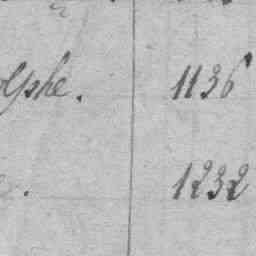 olphe. 1136
. 1232